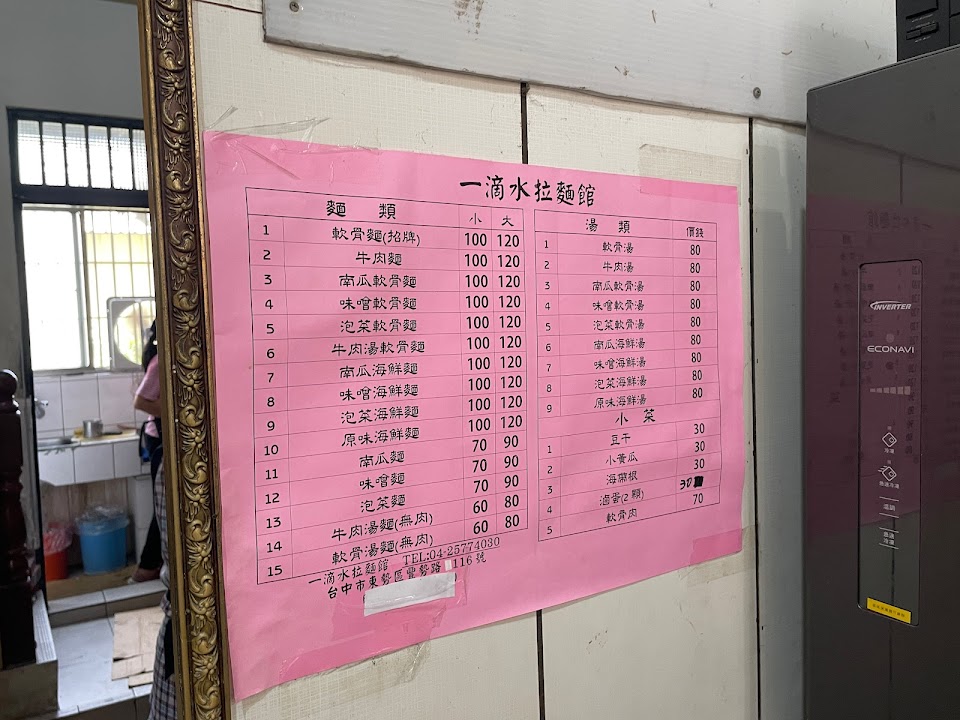 一滴水拉麵館
麵 類 小 大
1 軟骨麵(招牌) 100 120
2 牛肉麵 100 120
3 南瓜軟骨麵 100 120
4 味噌軟骨麵 100 120
5 泡菜軟骨麵 100 120
6 牛肉湯軟骨麵 100 120
7 南瓜海鮮麵 100 120
8 味噌海鮮麵 100 120
9 泡菜海鮮麵 100 120
10 原味海鮮麵 100 120
11 南瓜麵 70 90
12 味噌麵 70 90
13 泡菜麵 70 90
14 牛肉湯麵(無肉) 60 80
15 軟骨湯麵(無肉) 60 80
湯 類 價錢
1 軟骨湯 80
2 牛肉湯 80
3 南瓜軟骨湯 80
4 味噌軟骨湯 80
5 泡菜軟骨湯 80
6 南瓜海鮮湯 80
7 味噌海鮮湯 80
8 泡菜海鮮湯 80
9 原味海鮮湯 80
小 菜
1 豆干 30
2 小黃瓜 30
3 海帶根 30
4 滷蛋(2顆) 30
5 軟骨肉 70
一滴水拉麵館 TEL:04-25774030
台中市東勢區豐勢路 116號
INVERTER
ECONAVI